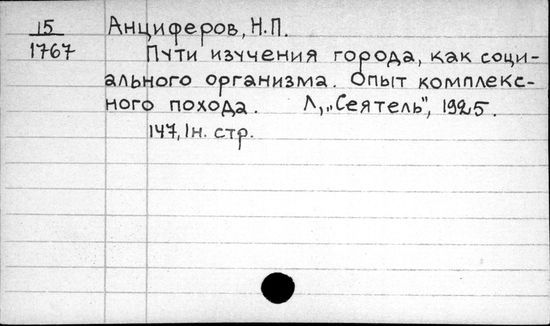 15
1767
Анциферов, Н.П.
Пути изучения города, как соци-
ального организма. Опыт комплекс-
ного похода. Л, „Сеятель", 1925.
147, 1н. стр.